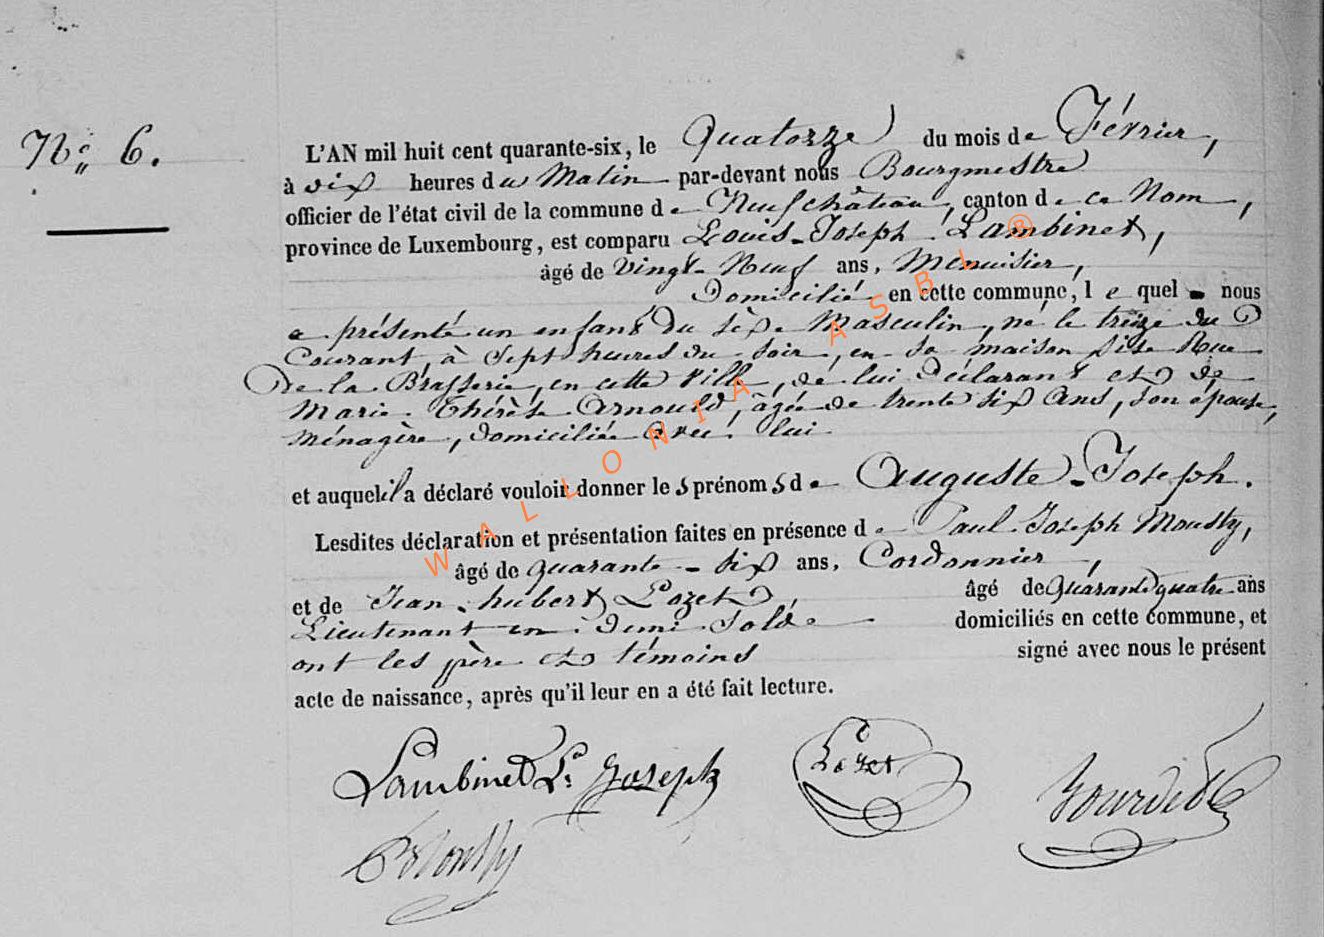 Nº 6.
L'AN mil huit cent quarante-six, le Quatorze du mois de Février,
à dix heures du Matin par-devant nous Bourgmestre
officier de l'état civil de la commune de Neufchâteau, canton de ce Nom,
province de Luxembourg, est comparu Louis-Joseph Lambinet,
âgé de Vingt-Neuf ans, Menuisier,
Domicilié en cette commune, lequel nous
a présenté un enfant du sèxe Masculin, né le treize du
Courant, à Sept heures du soir, en sa maison sise Rue
De la Brasserie, en cette Ville, de lui Déclarant et de
Marie Thérèse Arnould, âgée de trente six Ans, son épouse,
ménagère, domiciliée avec lui
et auquel il a déclaré vouloir donner les prénoms de Auguste-Joseph.
Lesdites déclaration et présentation faites en présence de Paul Joseph Mousty,
âgé de quarante-six ans, Cordonnier,
et de Jean-hubert Lozet, âgé de Quarante quatre ans
Lieutenant en demi Solde domiciliés en cette commune, et
ont les père et témoins signé avec nous le présent
acte de naissance, après qu'il leur en a été fait lecture.
Lambinet Ls Joseph Lozet
PMousty
WALLONIA ASBL ®